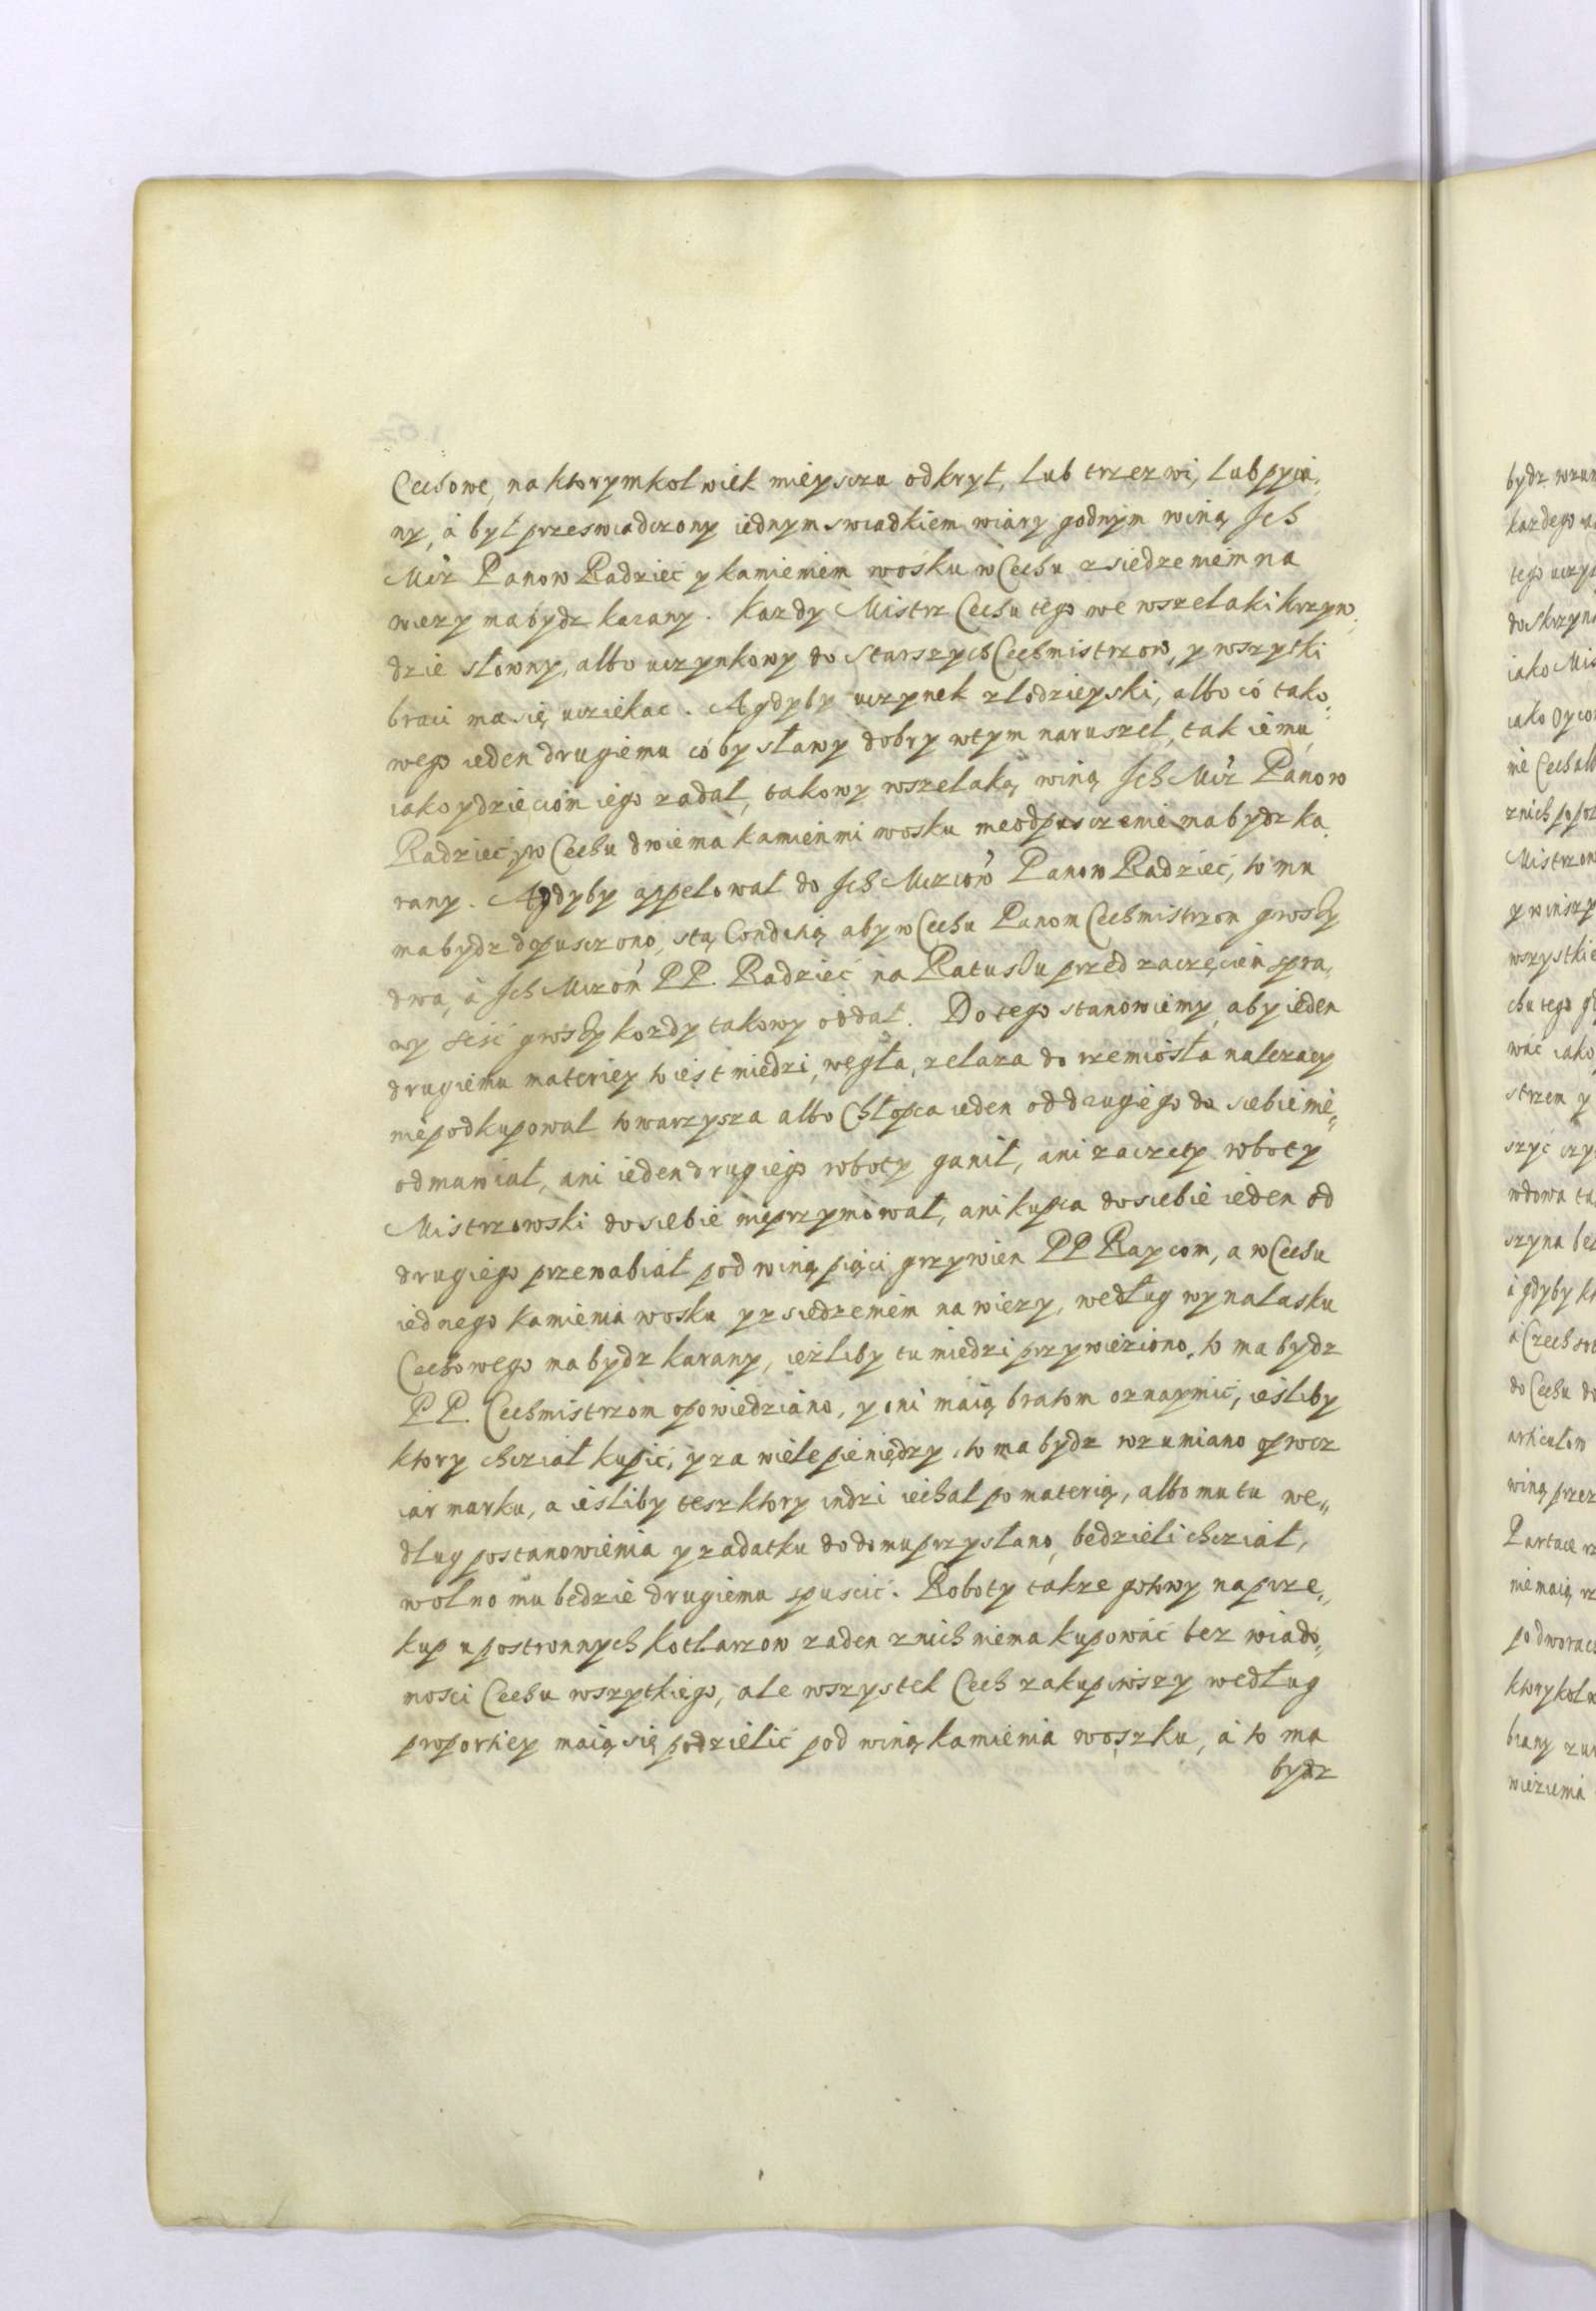 Cechowe, na ktorymkolwiek mieyscu odkrył, lub trzezwi, lub pyia,
ny, á był przeswiadczony iednym swiadkiem wiary godnym winą Ich
Mśz Panow Radziec y kamieniem wosku w Cechu z siedzeniem na
wiezy ma bydz karany. Kazdy Mistrz Cechu tego we wszelaki krzyw,
dzie słowny, albo uczynkowy do Starszych Cechmistrzow, y wszytki
braci ma się uciekac. A gdyby uczynek złodzieyski, albo có tako,
wego ieden drugiemu có by sławy dobry w tym naruszeł, tak iemu
iako y dzieciom iego zadał, takowy wszelaką winą Ich Mśz Panow
Radziec y w Cechu dwiema kamieńmi wosku nieodpusczenie ma bydz ka,
rany. A gdyby appelował do Ich Mcziow Panow Radziec, to mu
ma bydz dopusczono, s tą Condicią aby w Cechu Panom Cechmistrzom groszy
dwa, á Ich Mczom PP. Radziec na Ratuszu przed zaczęciem spra,
wy sesc groszy kozdy takowy oddał. Do tego stanowiemy, aby ieden
drugiemu materiey to iest miedzi, węgla, zelaza do rzemiosła nalezacy
niepodkupował towarzysza albo Chłopca ieden od drugiego do siebie nie„
odmawiał, ani ieden drugiego roboty ganił, ani zaczety roboty
Mistrzowski do siebie nieprzymował, ani kupca do siebie ieden od
drugiego przewabiał pod winą pięci grzywien PP Raycom, a w Cechu
iednego kamienia wosku y z siedzeniem na wiezy, według wynalasku
Cechowego ma bydz karany, ieżliby tu miedzi przywieziono, to ma bydz
PP. Cechmistrzom opowiedziano, y oni maią bratom oznaymić, iesliby
ktory chciał kupić, y za wiele pieniędzy, to ma bydz rozumiano oprocz
iarmarku, a iesliby tesz ktory indzi iechał po materią, albo mu tu we„
dług postanowienia y zadatku do domu przysłano, bedzieli chciał,
wolno mu bedzie drugiemu spuscić. Roboty takze gotowy na prze„
kup u postronnych kotlarzow zaden z nich niema kupowác bez wiado„
mosci Cechu wszytkiego, ale wszystek Cech zakupiwszy według
proportiey maią się podzielić pod winą kamienia woszku, á to ma
bydz